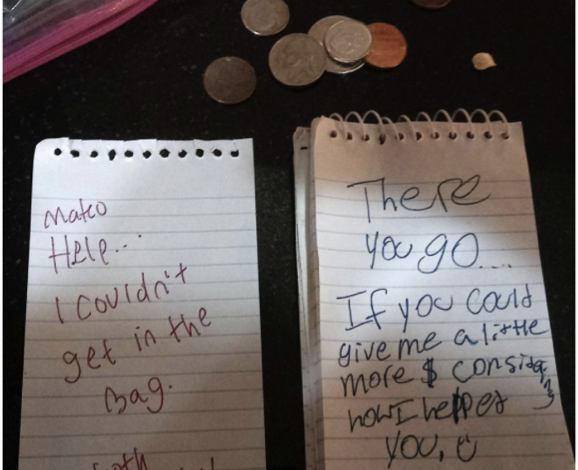 Mateo
Help...
I couldn't
get in the
Bag.
There
you go....
If you could
give me a little
more $ considering
how I helped
you. :)